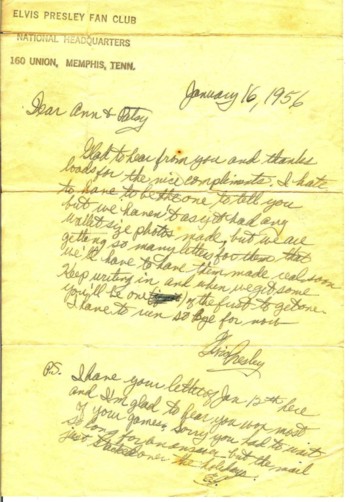 ELVIS PRESLEY FAN CLUB
NATIONAL HEADQUARTERS
160 UNION, MEMPHIS, TENN.
January 16, 1956
Dear Ann & Patsy
Glad to hear from you and thanks
loads for the nice compliments. I hate
to have to be the one to tell you
but we haven't as yet had any
wallet size photos made, but we are
getting so many letters for them that
we'll have to have them made real soon
Keep writing in and when we get some
you'll be one of the first to get one
I have to run so bye for now
Elvis Presley
PS. I have your letter of Jan 12th here
and I'm glad to hear you won most
of your games. Sorry you had to wait
so long for an answer but the mail
just over the holidays.